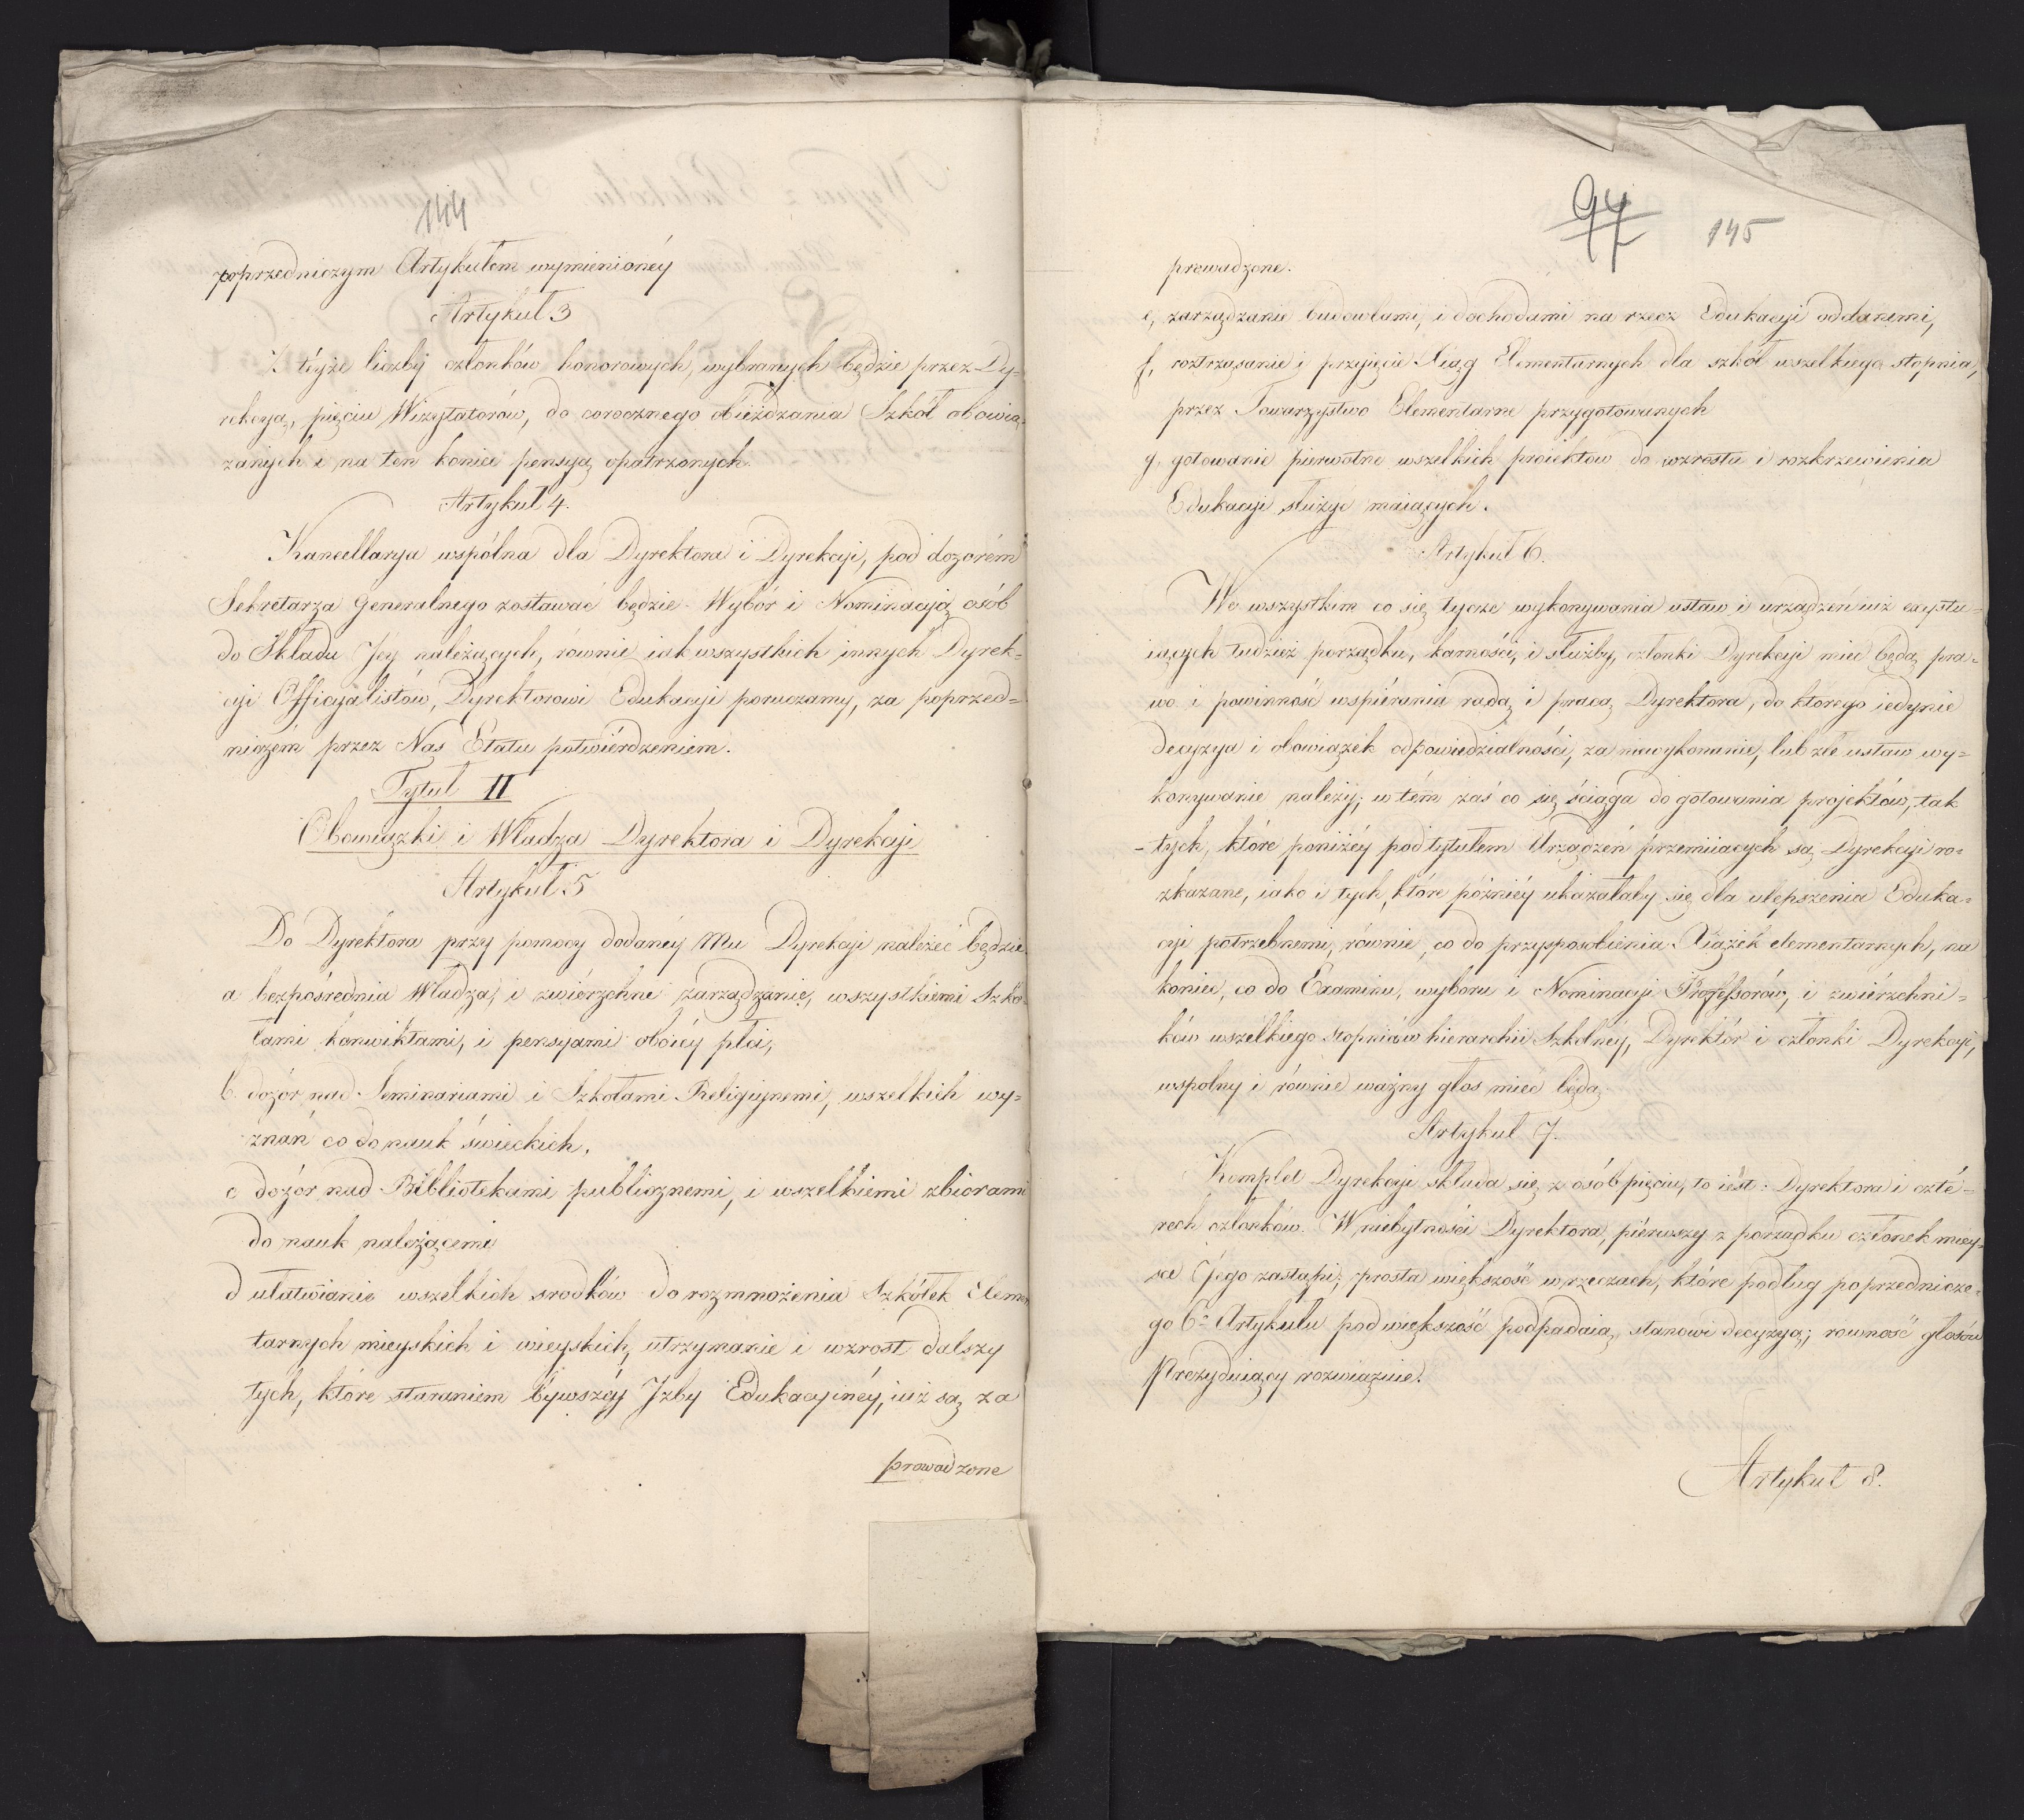 144
poprzedniczym Artykułem wymienionéy
Artykuł 3
Z téyże liczby członków honorowych, wybranych będzie przez Dy=
rekcyą, pięciu Wizytatorów, do corocznego obieżdzania Szkół obowią
zanych i na ten koniec pensyą opatrzonych.
Artykuł 4.
Kancellarya wspólna dla Dyrektora i Dyrekcyi, pod dozorém
Sekretarza Generalnego zostawać będzie. Wybór i Nominacyą osób
do Składu Jéy należących, równie iak wszystkich innych Dyrek=
cyi Officyalistów, Dyrektorowi Edukacyi poruczamy, za poprzed=
niczém przez Nas Etatu potwiérdzeniem.
Tytuł II
Obowiązki i Władza Dyrektora i Dyrekcyi
Artykuł 5
Do Dyrektora przy pomocy dodanéy Mu Dyrekcyi należeć będzie
a bezpośrednia Władza, i zwiérzchnie zarządzanie, wszystkiemi Szko
łami konwiktami, i pensyami obóiéy płci,
b. dozór nad Seminariami i Szkołami Religiynemi, wszelkich wy=
znań co do nauk świeckich.
c dozór nad Bibliotekami publicznemi, i wszelkiemi zbiorami
do nauk należącemi
d ułatwianie wszelkich srodków do rozmnożenia Szkółek Elemen
tarnych mieyskich i wieyskich, utrzymanie i wzrost dalszy
tych, które staraniem bywszéy Jzby Edukacyinéy, iuż są za
prowadzone
97
145
prowadzone.
e, zarządzanie budowlami, i dochodami na rzecz Edukacyi oddanemi,
f, roztrząsanie i przyjęcie Xiąg Elementarnych dla szkół wszelkiego stopnia,
przez Towarzystwo Elementarne przygotowanych
g, gotowanie pierwotne wszelkich proiektow do wzrostu i rozkrzewienia
Edukacyi służyć maiących.
Artykuł 6.
We wszystkim co się tycze wykonywania ustaw i urządzeń iuż exystu=
iących tudzież porządku, karności, i służby, członki Dyrekcyi mieć będą pra=
wo i powinność wspiérania radą i pracą Dyrektora, do którego iedynie
decyzya i obowiązek odpowiedzialności, za niewykonanie, lub złe ustaw wy=
konywanie należy; w tém zaś co się ściąga do gotowania projektów, tak
tych, które poniżéy pod tytułem Urządzeń przemiiaiących są Dyrekcyi ro=
zkazane, iako i tych, które późniéy ukazałaby się dla ulepszenia Eduka=
cyi potrzebnemi, równie, co do przysposobienia Xiążek elementarnych, na
koniec, co do Examinu, wyboru i Nominacyi Professorów, i zwiérzchni=
ków wszelkiego stopnia w hierarchii Szkolnéy, Dyrektór i członki Dyrekcyi,
wspolny i równie ważny głos mieć będą.
Artykuł 7.
Komplet Dyrekcyi składa się z osób pięciu, to iést: Dyrektora i czté=
rech członków. W niebytności Dyrektora, piérwszy z porządku członek miey=
sce Jego zastąpi; prosta większość w rzeczach, które podług poprzednicze=
go 6o Artykułu pod większość podpadaią, stanowi decyzyą; rowność głosów
Prezyduiący rozwiązuie.
Artykuł 8.